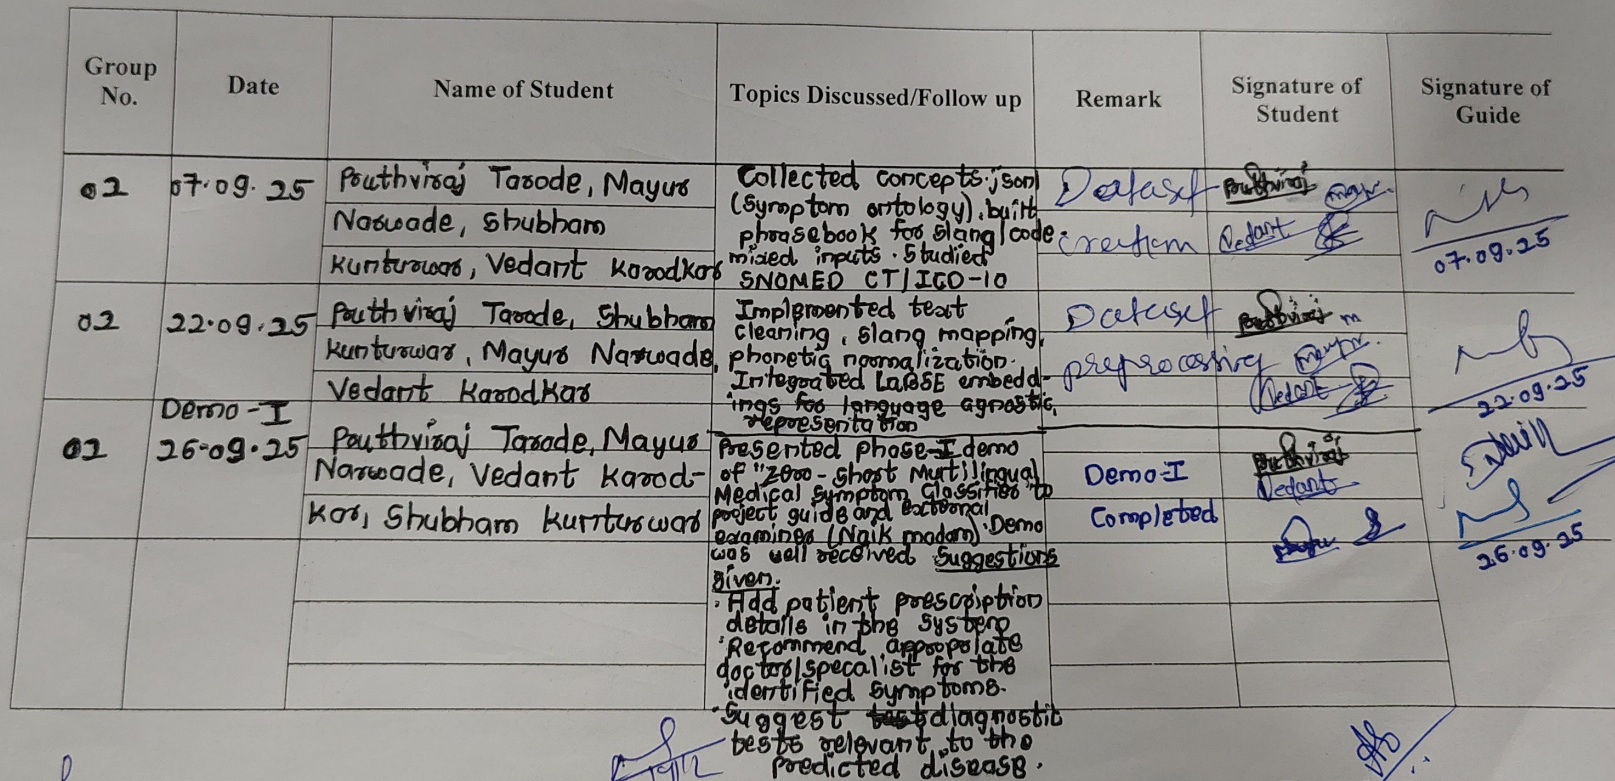 Group No.
Date
Name of Student
Topics Discussed/Follow up
Remark
Signature of Student
Signature of Guide
02
07.09.25
Pruthviraj Tarode, Mayur
Narwade, Shubham
Kunturwar, Vedant Karodkar
Collected concepts.json
(symptom ontology), built
phrasebook for slang/code-
mixed inputs. Studied
SNOMED CT/ICD-10
Dataset
creation
Pruthviraj
Mayur
Vedant
07.09.25
02
22.09.25
Pruthviraj Tarode, Shubham
Kunturwar, Mayur Narwade,
Vedant Karodkar
Implemented text
cleaning, slang mapping,
phonetic normalization.
Integrated LaBSE embedd-
ings for language agnostic,
representation
Dataset
preprocessing
Pruthviraj
Mayur
Vedant
22.09.25
Demo-I
02
26-09.25
Pruthviraj Tarode, Mayur
Narwade, Vedant Karod-
kar, Shubham Kunturwar
Presented phase-I demo
of "Zero-short Murtilingual
Medical Symptom Classifier" to
project guide and external
examiner (Naik madam). Demo
was well received Suggestions
given.
· Add patient prescription
details in the system
· Recommend appropolate
doctor/specalist for the
identified symptoms.
· Suggest diagnostic
tests relevant to the
predicted disease.
Demo-I
Completed
Pruthviraj
Vedant
26.09.25